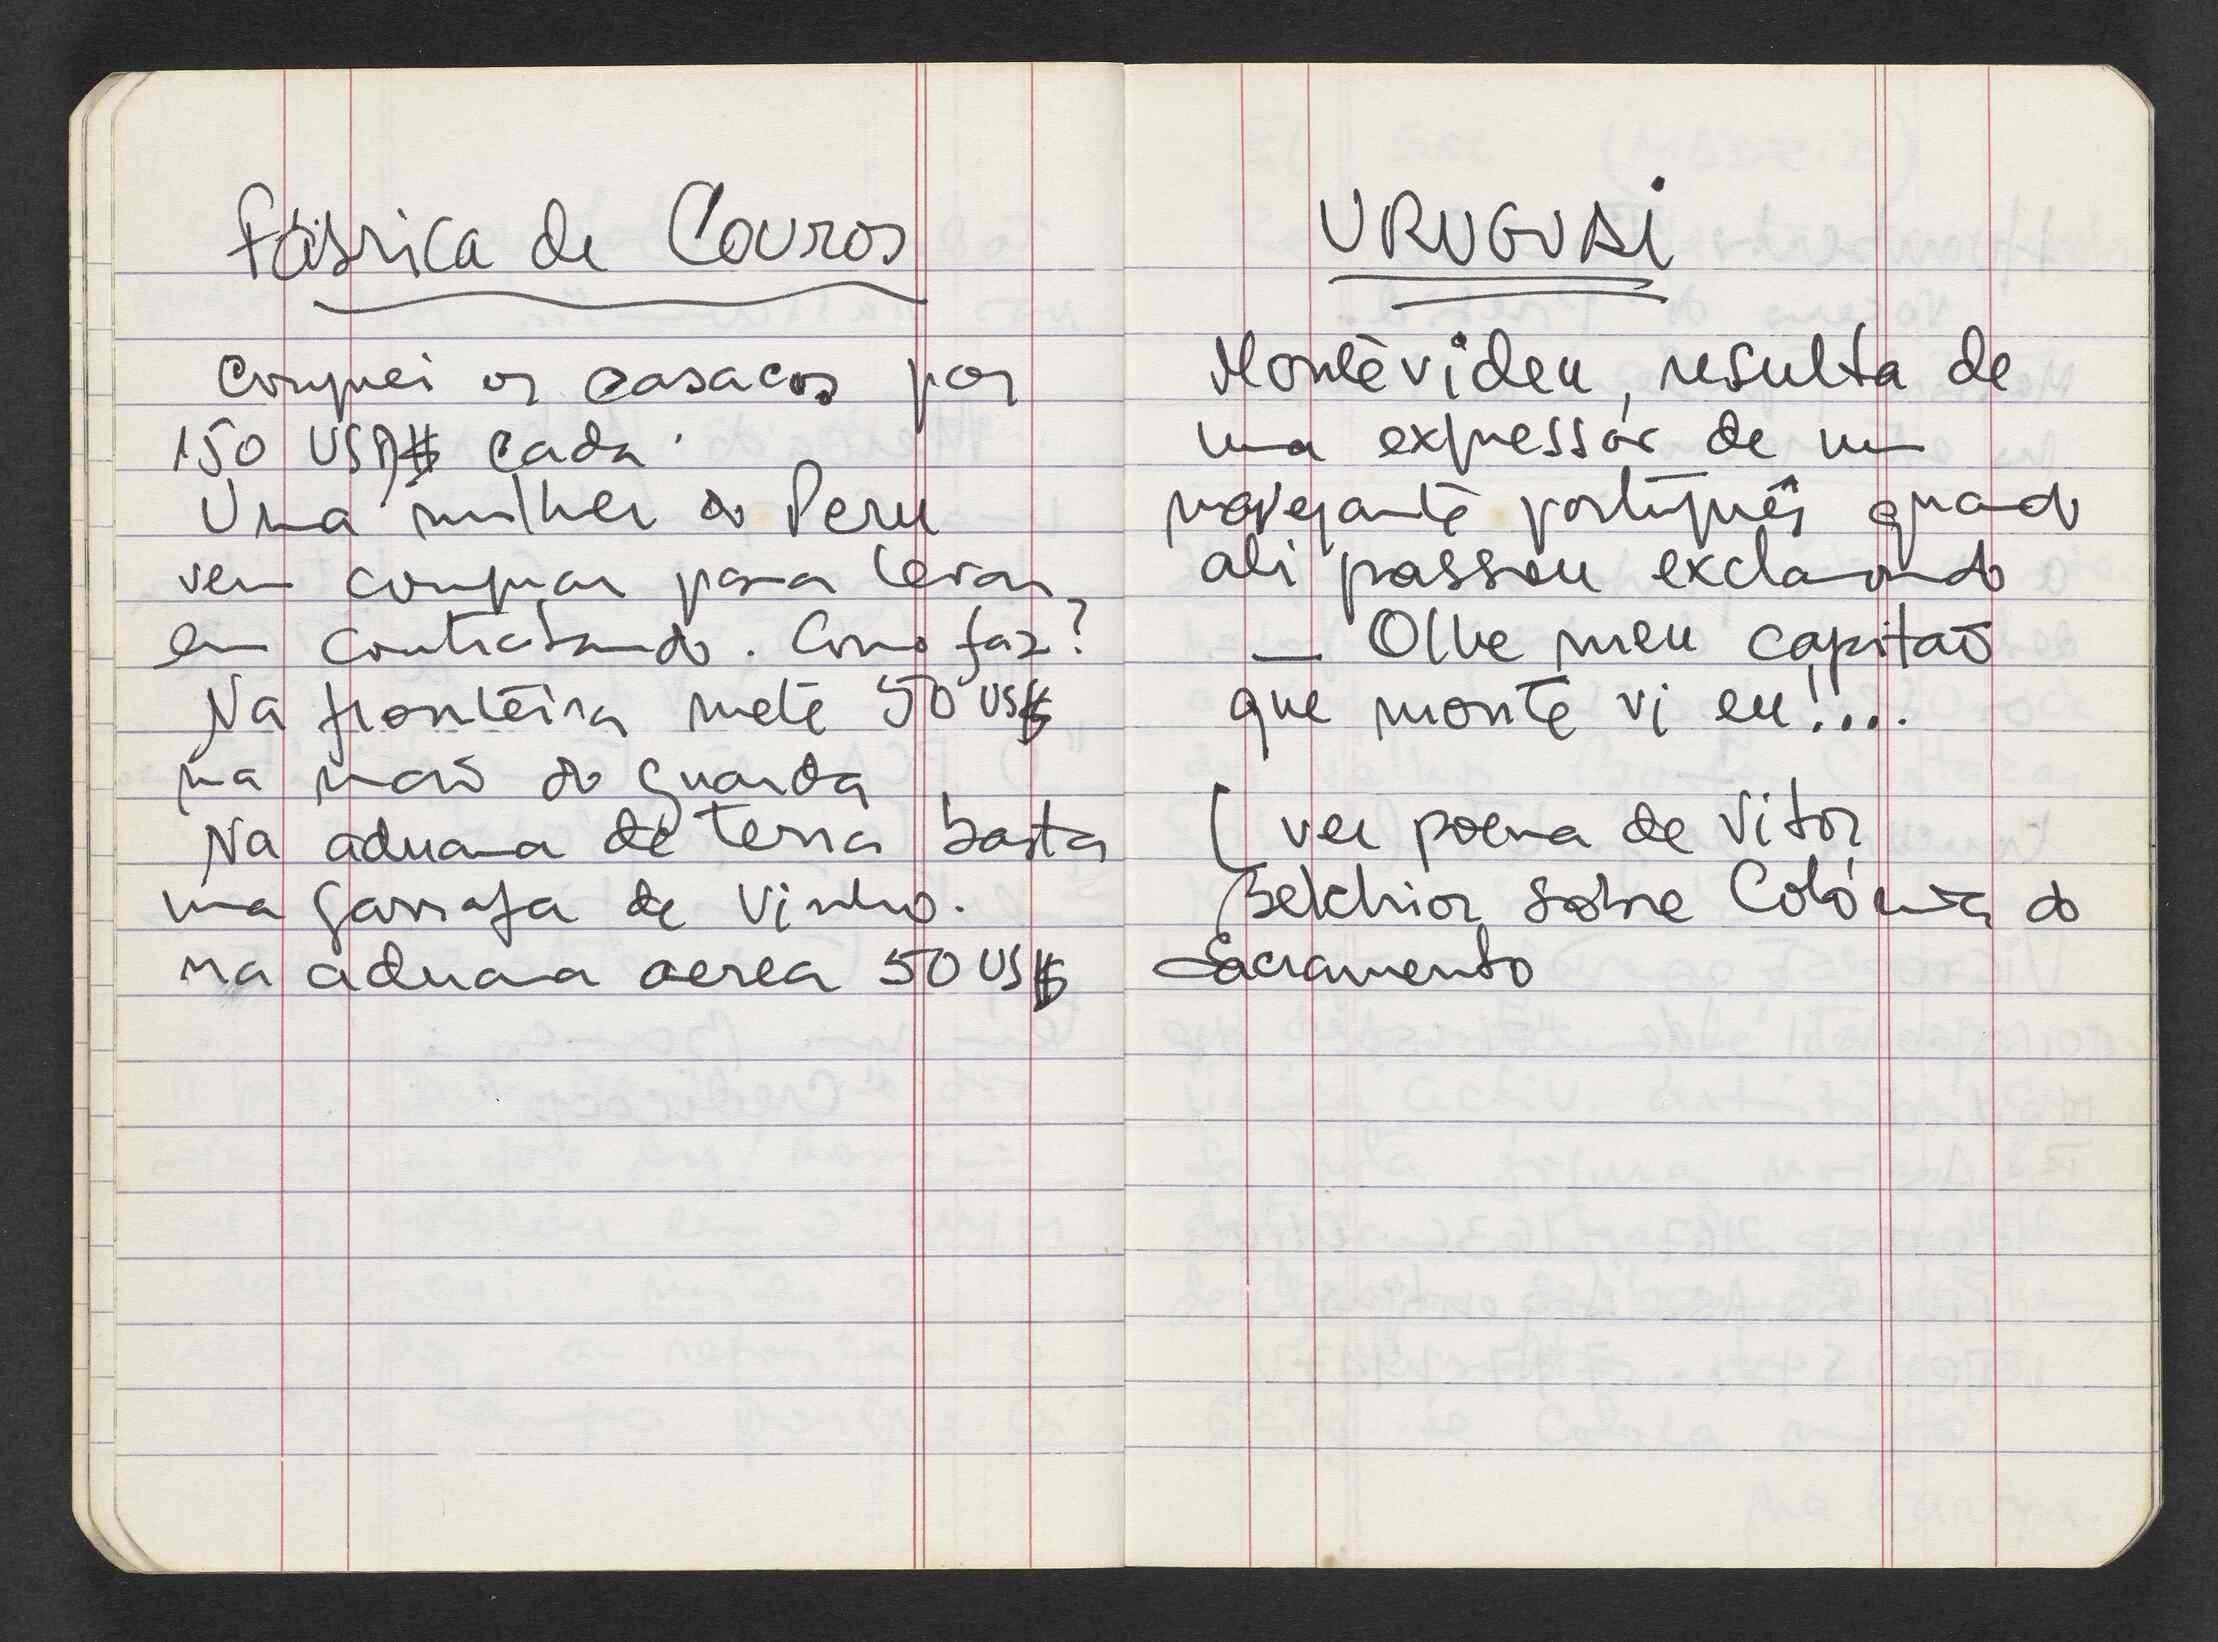 Fábrica de Couros
Comprei os casacos por
150 USA$ cada.
Uma mulher do Peru
vem comprar para levar
em contrabando. Como faz?
Na fronteira mete 50 US$
na mão do guarda
Na aduana de terra basta
uma garrafa de vinho.
na aduana aerea 50 US$
URUGUAI
Montevideu, resulta de
uma expressão de um
navegante português quando
ali passou exclamando
— Olhe meu capitão
que monte vi eu!...
( ver poema de Vitor
Belchior sobre Colónia do
Sacramento